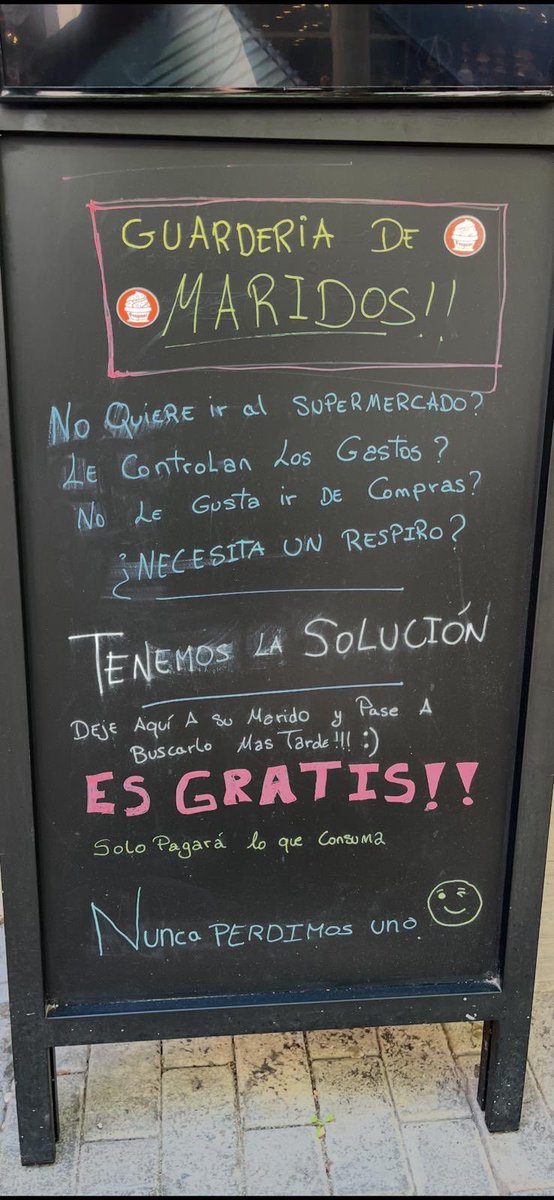 GUARDERIA DE
MARIDOS!!
No QUIERE ir al SUPERMERCADO?
LE Controlan Los Gastos?
No LE Gusta ir DE Compras?
¿NECESITA UN RESPIRO?
TENEMOS LA SOLUCIÓN
DEJE Aquí A su Marido y Pase A
Buscarlo Mas Tarde!!! :)
ES GRATIS!!
Solo Pagará lo que Consuma
Nunca PERDIMOS uno